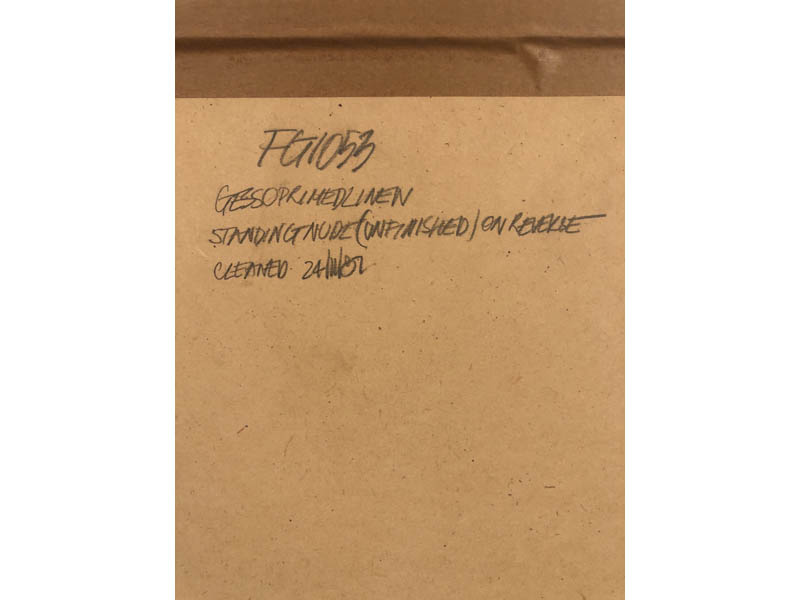 FG1053
GESSO PRIMED LINEN
STANDING NUDE (UNFINISHED) ON REVERSE
CLEANED